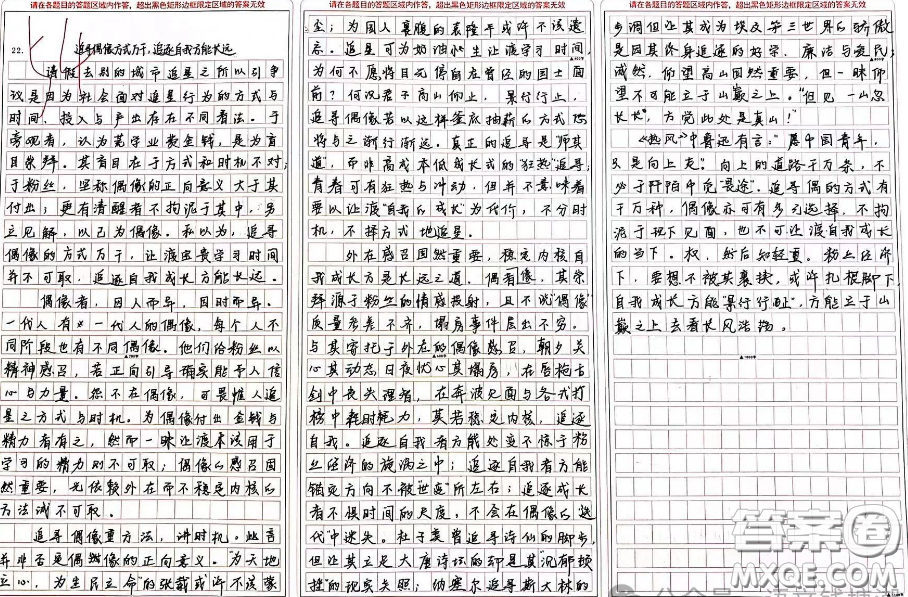 请在各题目的答题区域内作答，超出黑色矩形边框限定区域的答案无效
22.
追寻偶像方式万千，追逐自我方能长远
请假去别的城市追星之所以引争
议是因为社会面对追星行为的方式与
时间、投入与产出存在不同看法。于
旁观者，认为荒学业费金钱，是为盲
目崇拜。其盲目在于方式和时机不对；
于粉丝，坚称偶像的正向意义大于其
付出；更有清醒者不拘泥于其中，另
立见解，以己为偶像。私以为，追寻
偶像的方式万千，让渡出学习时间
并不可取，追逐自我成长方能长远。
偶像者，因人而异，因时而异。
一代人有一代人的偶像，每个人不
同阶段也有不同偶像。他们给粉丝以
精神感召，若正向引导确实能予人信
心与力量。怨不在偶像，可畏惟人追
星之方式与时机。为偶像付出金钱与
精力者有之，然而一味让渡本该用于
学习的精力则不可取；偶像的感召固
然重要，光依赖外在而不稳定内核的
方法诚不可取。
追寻偶像重方法，讲时机。此言
并非否定偶像的正向意义。"为天地
立心，为生民立命"的张载或许不该蒙
请在各题目的答题区域内作答，超出黑色矩形边框限定区域的答案无效
尘；为国人裹腹的袁隆平或许不该遗
忘。追星可为奶油小生让渡学习时间，
为何不愿将目光停留在曾经的国士面
前？何况君子高山仰止，景行行止，
追寻偶像若以这样釜底抽薪的方式恐
将与之渐行渐远。真正的追寻是"师其
道"，而非高成本低成长式的"狂热"追寻；
青春可有狂热与冲动，但并不意味着
要以让渡"自我的成长"为代价，不分时
机，不择方式地追星。
外在感召固然重要，稳定内核自
我成长方是长远之道。偶者像，其崇
拜源于粉丝的情感投射，且不说偶像
质量参差不齐，塌房事件层出不穷。
与其寄托于外在的偶像感召，朝夕关
心其动态，日夜忧心其塌房，在唇枪舌
剑中丧失理智，在奔波见面与各式打
榜中耗时耗力，莫若稳定内核，追逐
自我。追逐自我者方能处变不惊于粉
丝经济的旋涡之中；追逐自我者方能
锚定方向不被"世选"所左右；追逐成长
者不惧时间的尺度，不会在偶像的迭
代"中迷失。杜子美曾追寻诗仙的脚步，
但让其立足大唐诗坛的却是其"沉郁顿
挫"的现实关照；纳塞尔追寻斯大林的
请在各题目的答题区域内作答，超出黑色矩形边框限定区域的答案无效
步调但让其成为埃及第三世界的骄傲
是因其终身追逐的好学、廉洁与爱民；
诚然，仰望高山固然重要，但一昧仰
望不可能立于山巅之上。"但见一山忽
长长"，方觉此处是真山！
《热风》中鲁迅有言："愿中国青年，
只是向上走"。向上的道路千万条，不
必于阡陌中危"晨途"。追寻偶的方式有
千万种，偶像亦可有多元选择，不拘
泥于现下见面，也不可让渡自我成长
的当下。权，然后知轻重。粉丝经济
下，要想不被其裹挟，或许扎根脚下，
自我成长方能"景行行止"，方能立于山
巅之上去看长风浩荡。
答案圈
MXQE.COM